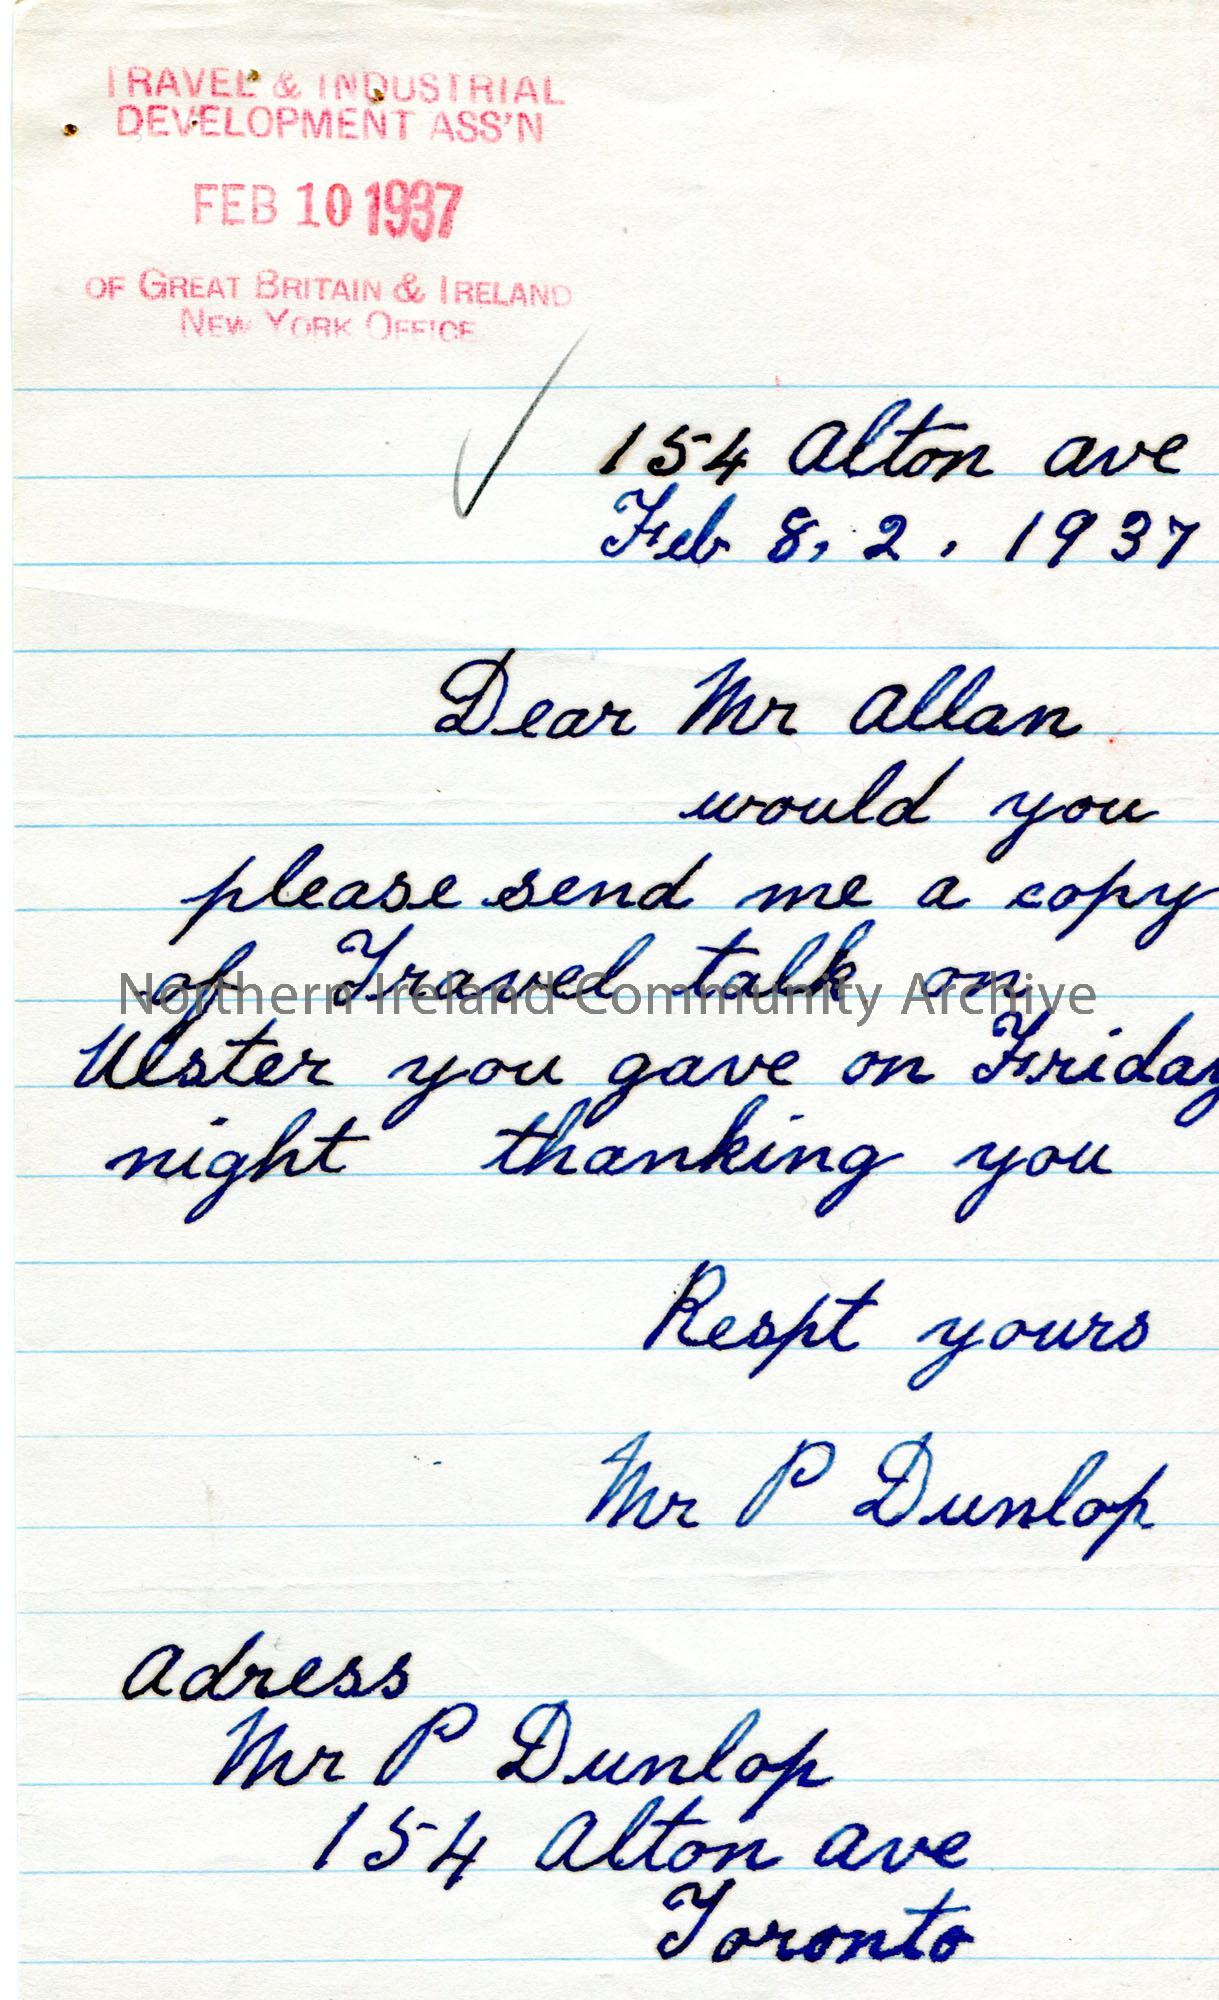 TRAVEL & INDUSTRIAL
DEVELOPMENT ASS'N
FEB 10 1937
OF GREAT BRITAIN & IRELAND
NEW YORK OFFICE
154 Alton ave
Feb 8, 2, 1937
Dear Mr Allan
would you
please send me a copy
of Travel talk on
Northern Ireland Community Archive
Ulster you gave on Friday
night thanking you
Respt yours
Mr P Dunlop
Adress
Mr P Dunlop
154 Alton ave
Toronto